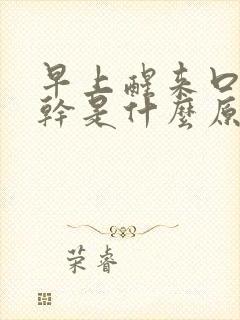 早上醒来口
幹是什麼原
荣睿